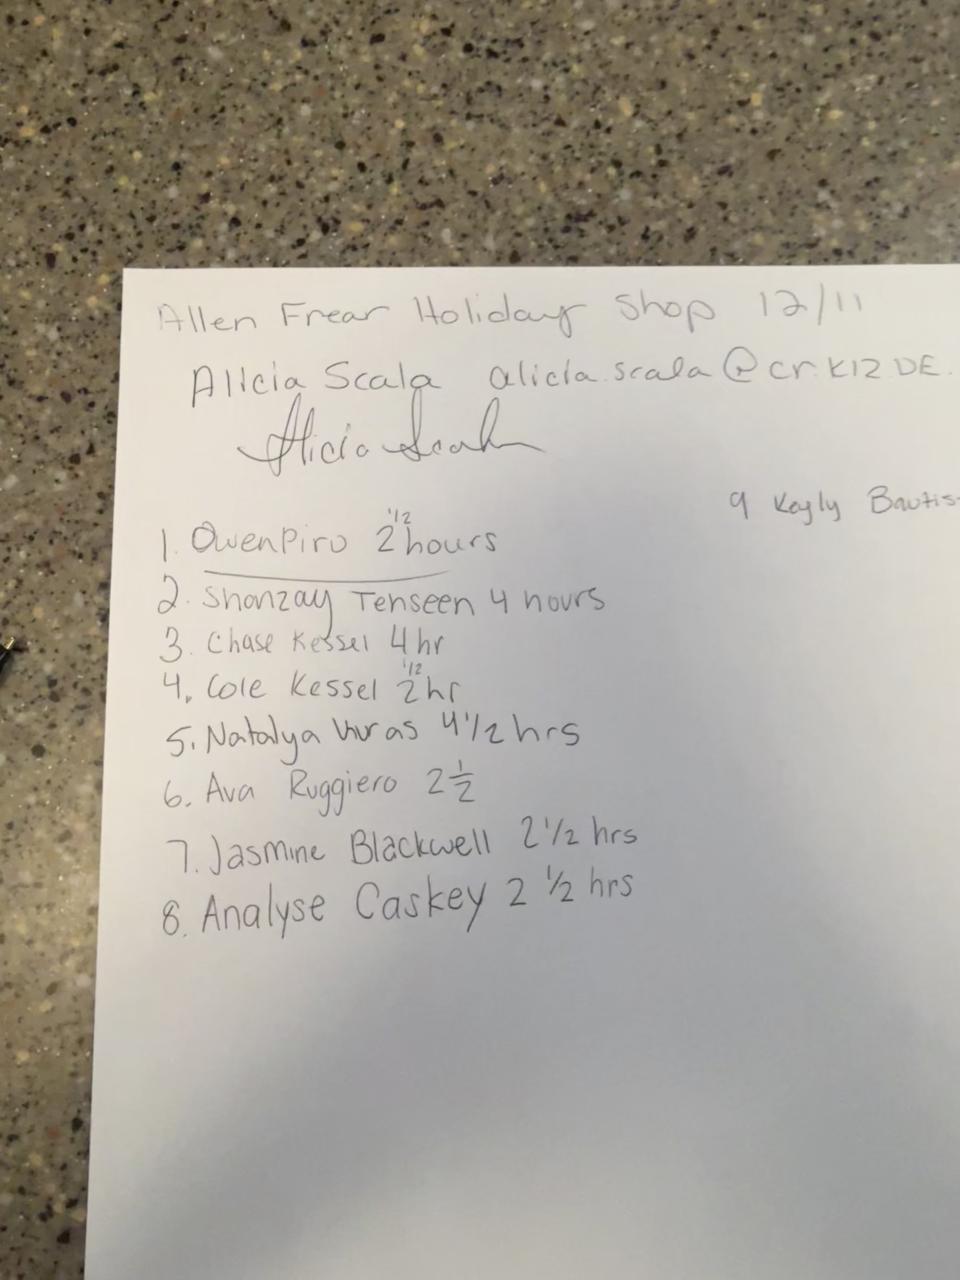 Allen Frear Holiday Shop 12/11
Alicia Scala alicia.scala@cr.K12.DE.
Alicia Scala
9 Kayly Bautis
1. Owen Piro 2 1/2 hours
2. Shanzay Tenseen 4 hours
3. Chase Kessel 4 hr
4. Cole Kessel 2 1/2 hr
5. Natalya 4 1/2 hrs
6. Ava Ruggiero 2 1/2
7. Jasmine Blackwell 2 1/2 hrs
8. Analyse Caskey 2 1/2 hrs